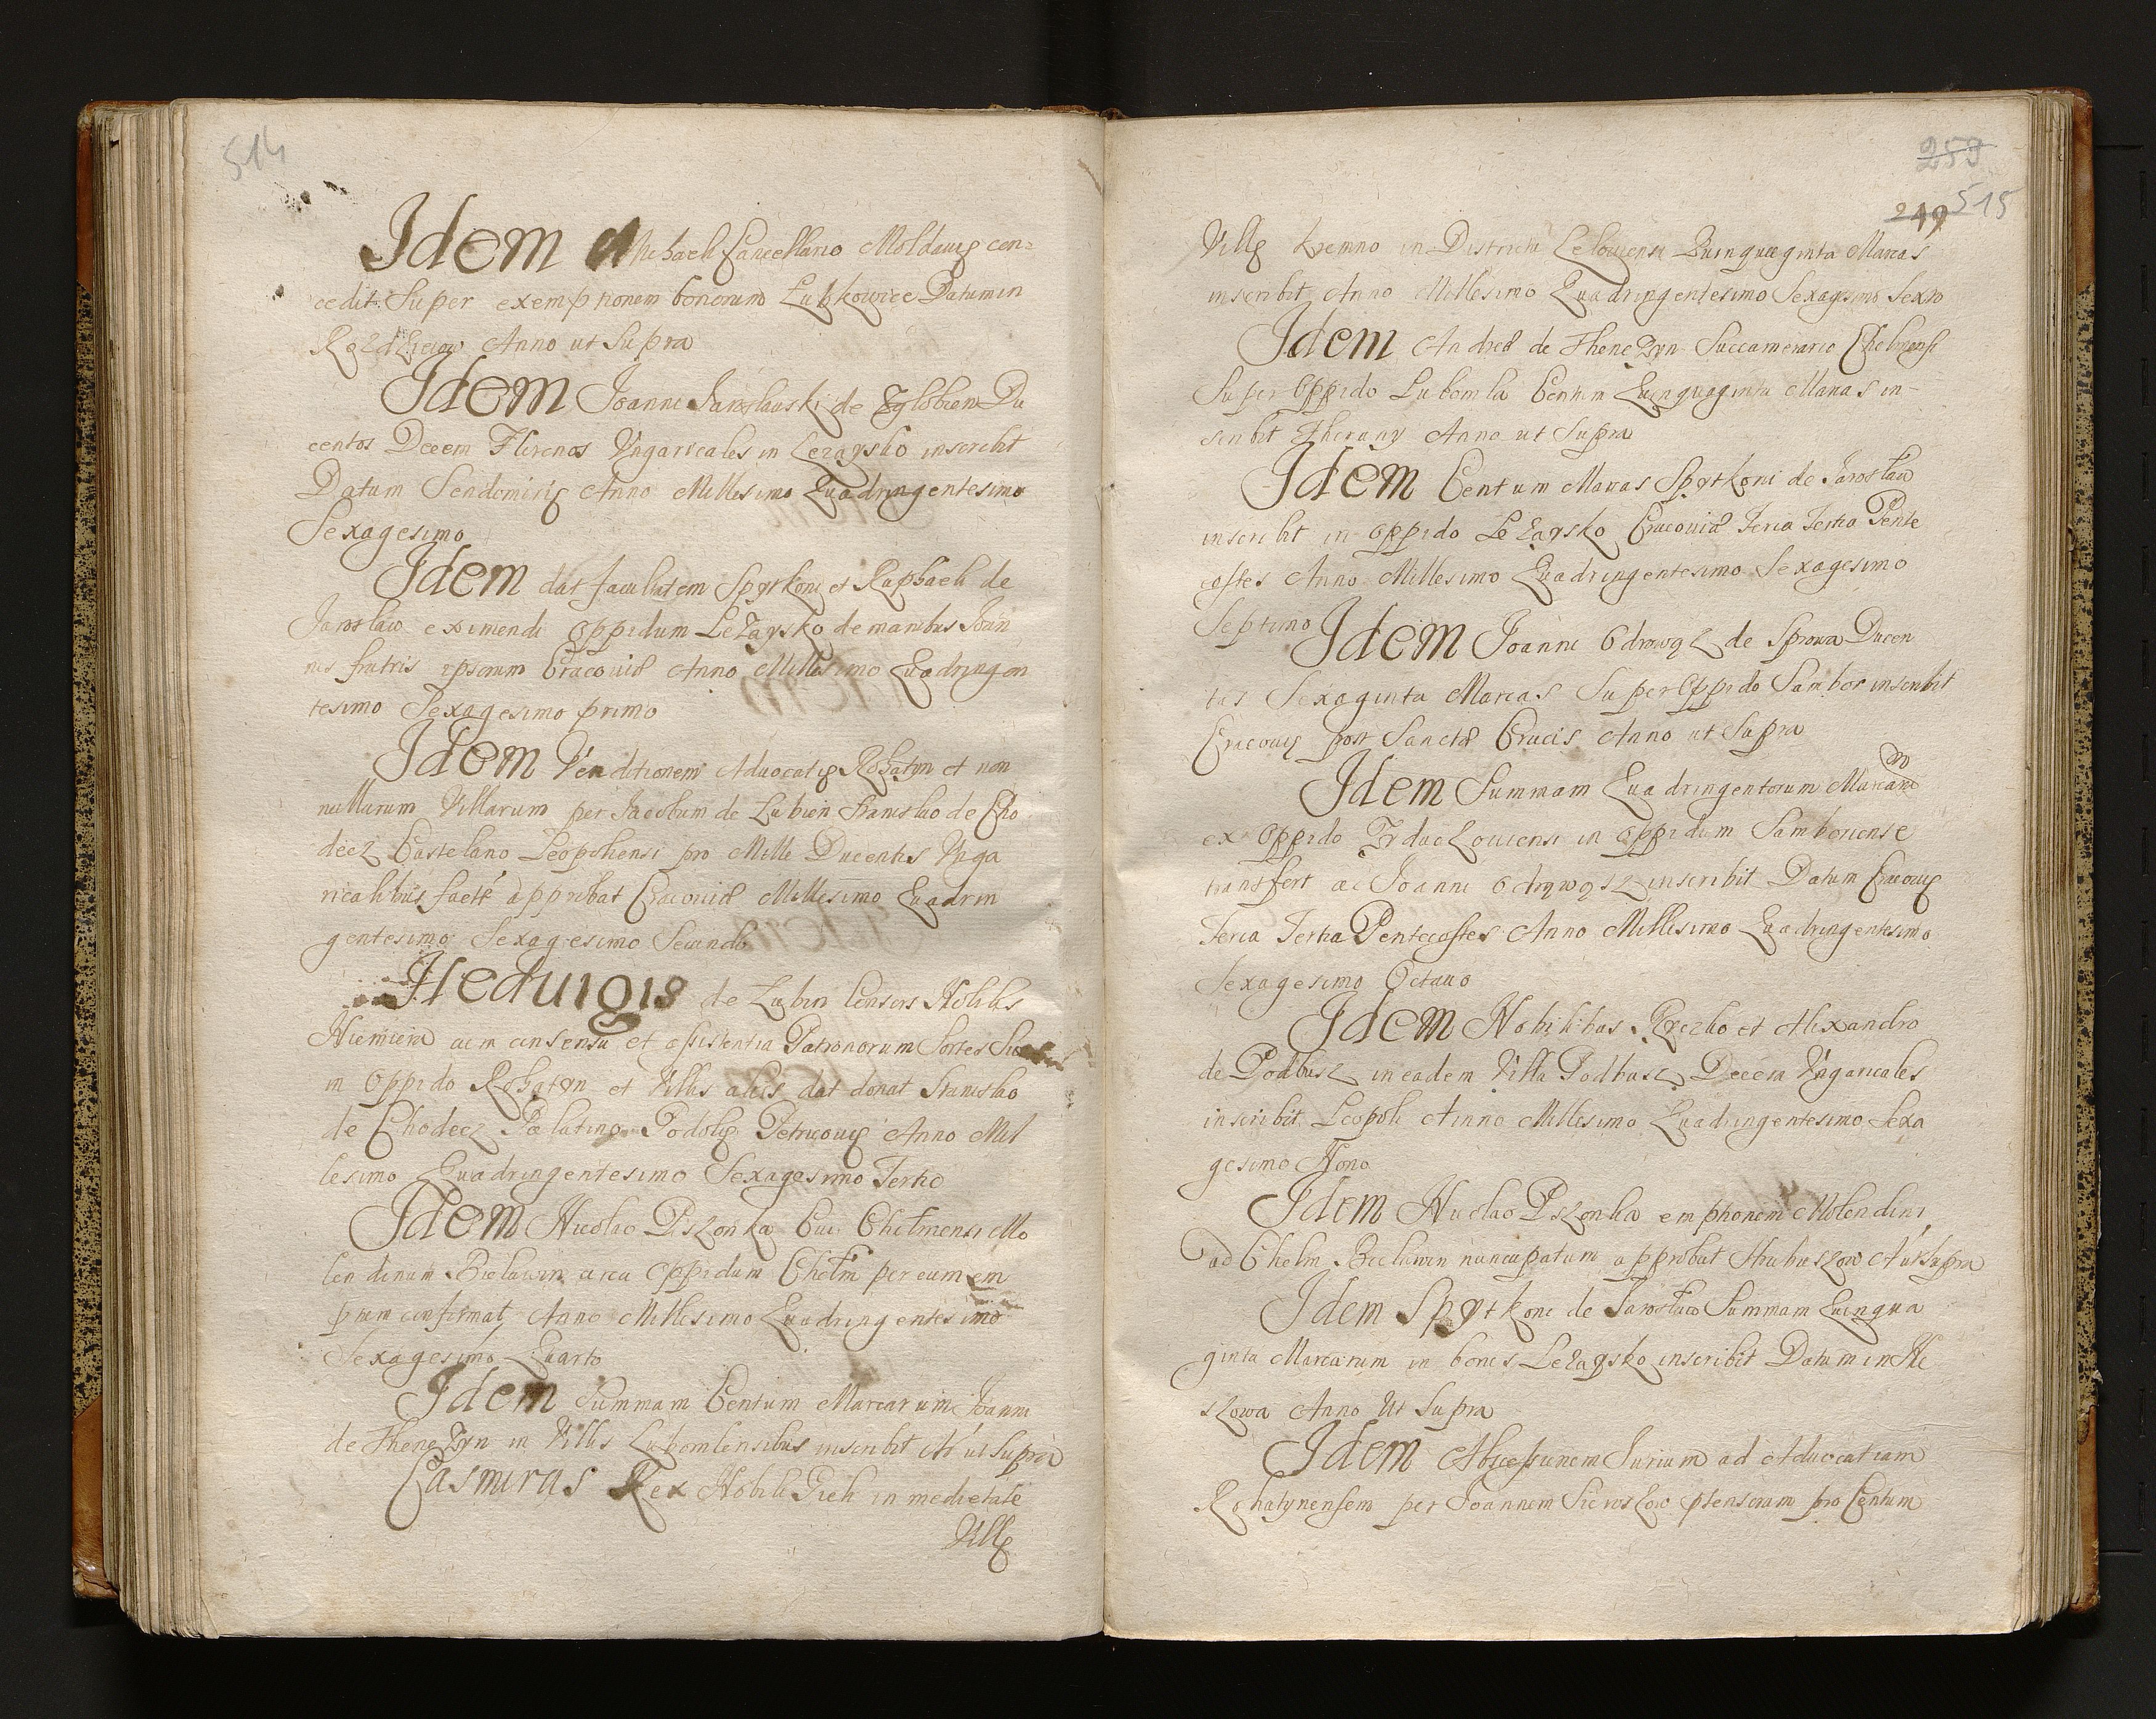 514
Idem Michaeli Cancellario Moldauię con=
cedit Super exemptionem bonorum Lubkowice Datum in
Anno ut Supra
Idem Joanni Jaroslauski de Zglobien Du
centos Decem Florenos Vngaricales in Lezaysko inscribit
Datum Sendomirię Anno Millesimo Quadringentesimo
Sexagesimo
Idem dat facultatem Spytkoni et Raphaeli de
Jaroslaw eximendi Oppidum Leżaysko de manibus Joan
nis fratris ipsorum Cracouiæ Anno Millesimo Quadringen
tesimo Sexagesimo primo
Idem Venditionem Aduocatię Rohatyn et non
nullarum Villarum per Jacobum de Lubien Stanislao de Cho
decz Castelano Leopoliensi pro Mille Ducentis Vnga
ricalibus facté approbat Cracouiæ Millesimo Quadrin
gentesimo Sexagesimo Secundo
Heduigis de Lubin Consors Nobilis
Niemiera cum consensu et assistentia Patronorum Sortes Suas
in Oppido Rohatyn et Villis aliis dat donat Stanislao
de Chodecz Palatino Podolię Petricouię Anno Mil
lesimo Quadringentesimo Sexagesimo Tertio
Idem Nicolao Pszonka Ciui Chelmensi Mo
lendinum Bielawin circa Oppidum Chełm per eum em
ptum confirmat Anno Millesimo Quadringentesimo
Sexagesimo Quarto
Idem Summam Centum Marcarum Joanni
de Thenczyn in Villis Lubomlensibus inscribit A ut Supra
Casimirus Rex Nobili Pieli in medietate
Villę
259
249 515
Villę Kremno in Districtu Leloviensi Quinquaginta Marcas
inscribit Anno Millesimo Quadringentesimo Sexagesimo Sexto
Idem Andreæ de Thenczyn Succamerario Chelmensi
Super Oppido Lubomla Centum Quinquaginta Marcas in-
scribit Thoruny Anno ut Supra
Idem Centum Marcas Spytkoni de Jaroslaw
inscribit in Oppido Leżaysko Cracouiæ Feria Tertia Pente
costes Anno Millesimo Quadringentesimo Sexagesimo
Septimo
Idem Joanni Odrowąz de Sprowa Ducen
tas Sexaginta Marcas Super Oppido Sambor inscribit
Cracouię post Sanctæ Crucis Anno ut Supra
Idem Summam Quadringentorum Marcarum
ex Oppido Zydaczouiensi in Oppidum Samboriense
transfert ac Joanni Odrowąsz inscribit Datum Cracouię
Feria Tertia Pentecostes Anno Millesimo Quadringentesimo
Sexagesimo Octauo
Idem Nobilibus et Alexandro
de Podbusz in eadem Villa Podbusz Decem Vngaricales
inscribit Leopoli Anno Millesimo Quadringentesimo Sexa
gesimo Nono
Idem Nicolao Pszonka emptionem Molendini
ad Chelm Bielawin nuncupatum approbat Hrubieszow A ut Supra
Idem Spytkoni de Jaroslaw Summam Quinqua
ginta Marcarum in bonis Leżaysko inscribit Datum in Ne
szowa Anno Ut Supra
Idem Abscessionem Jurium ad Aduocatiam
Rohatynensem per Joannem pro Centum